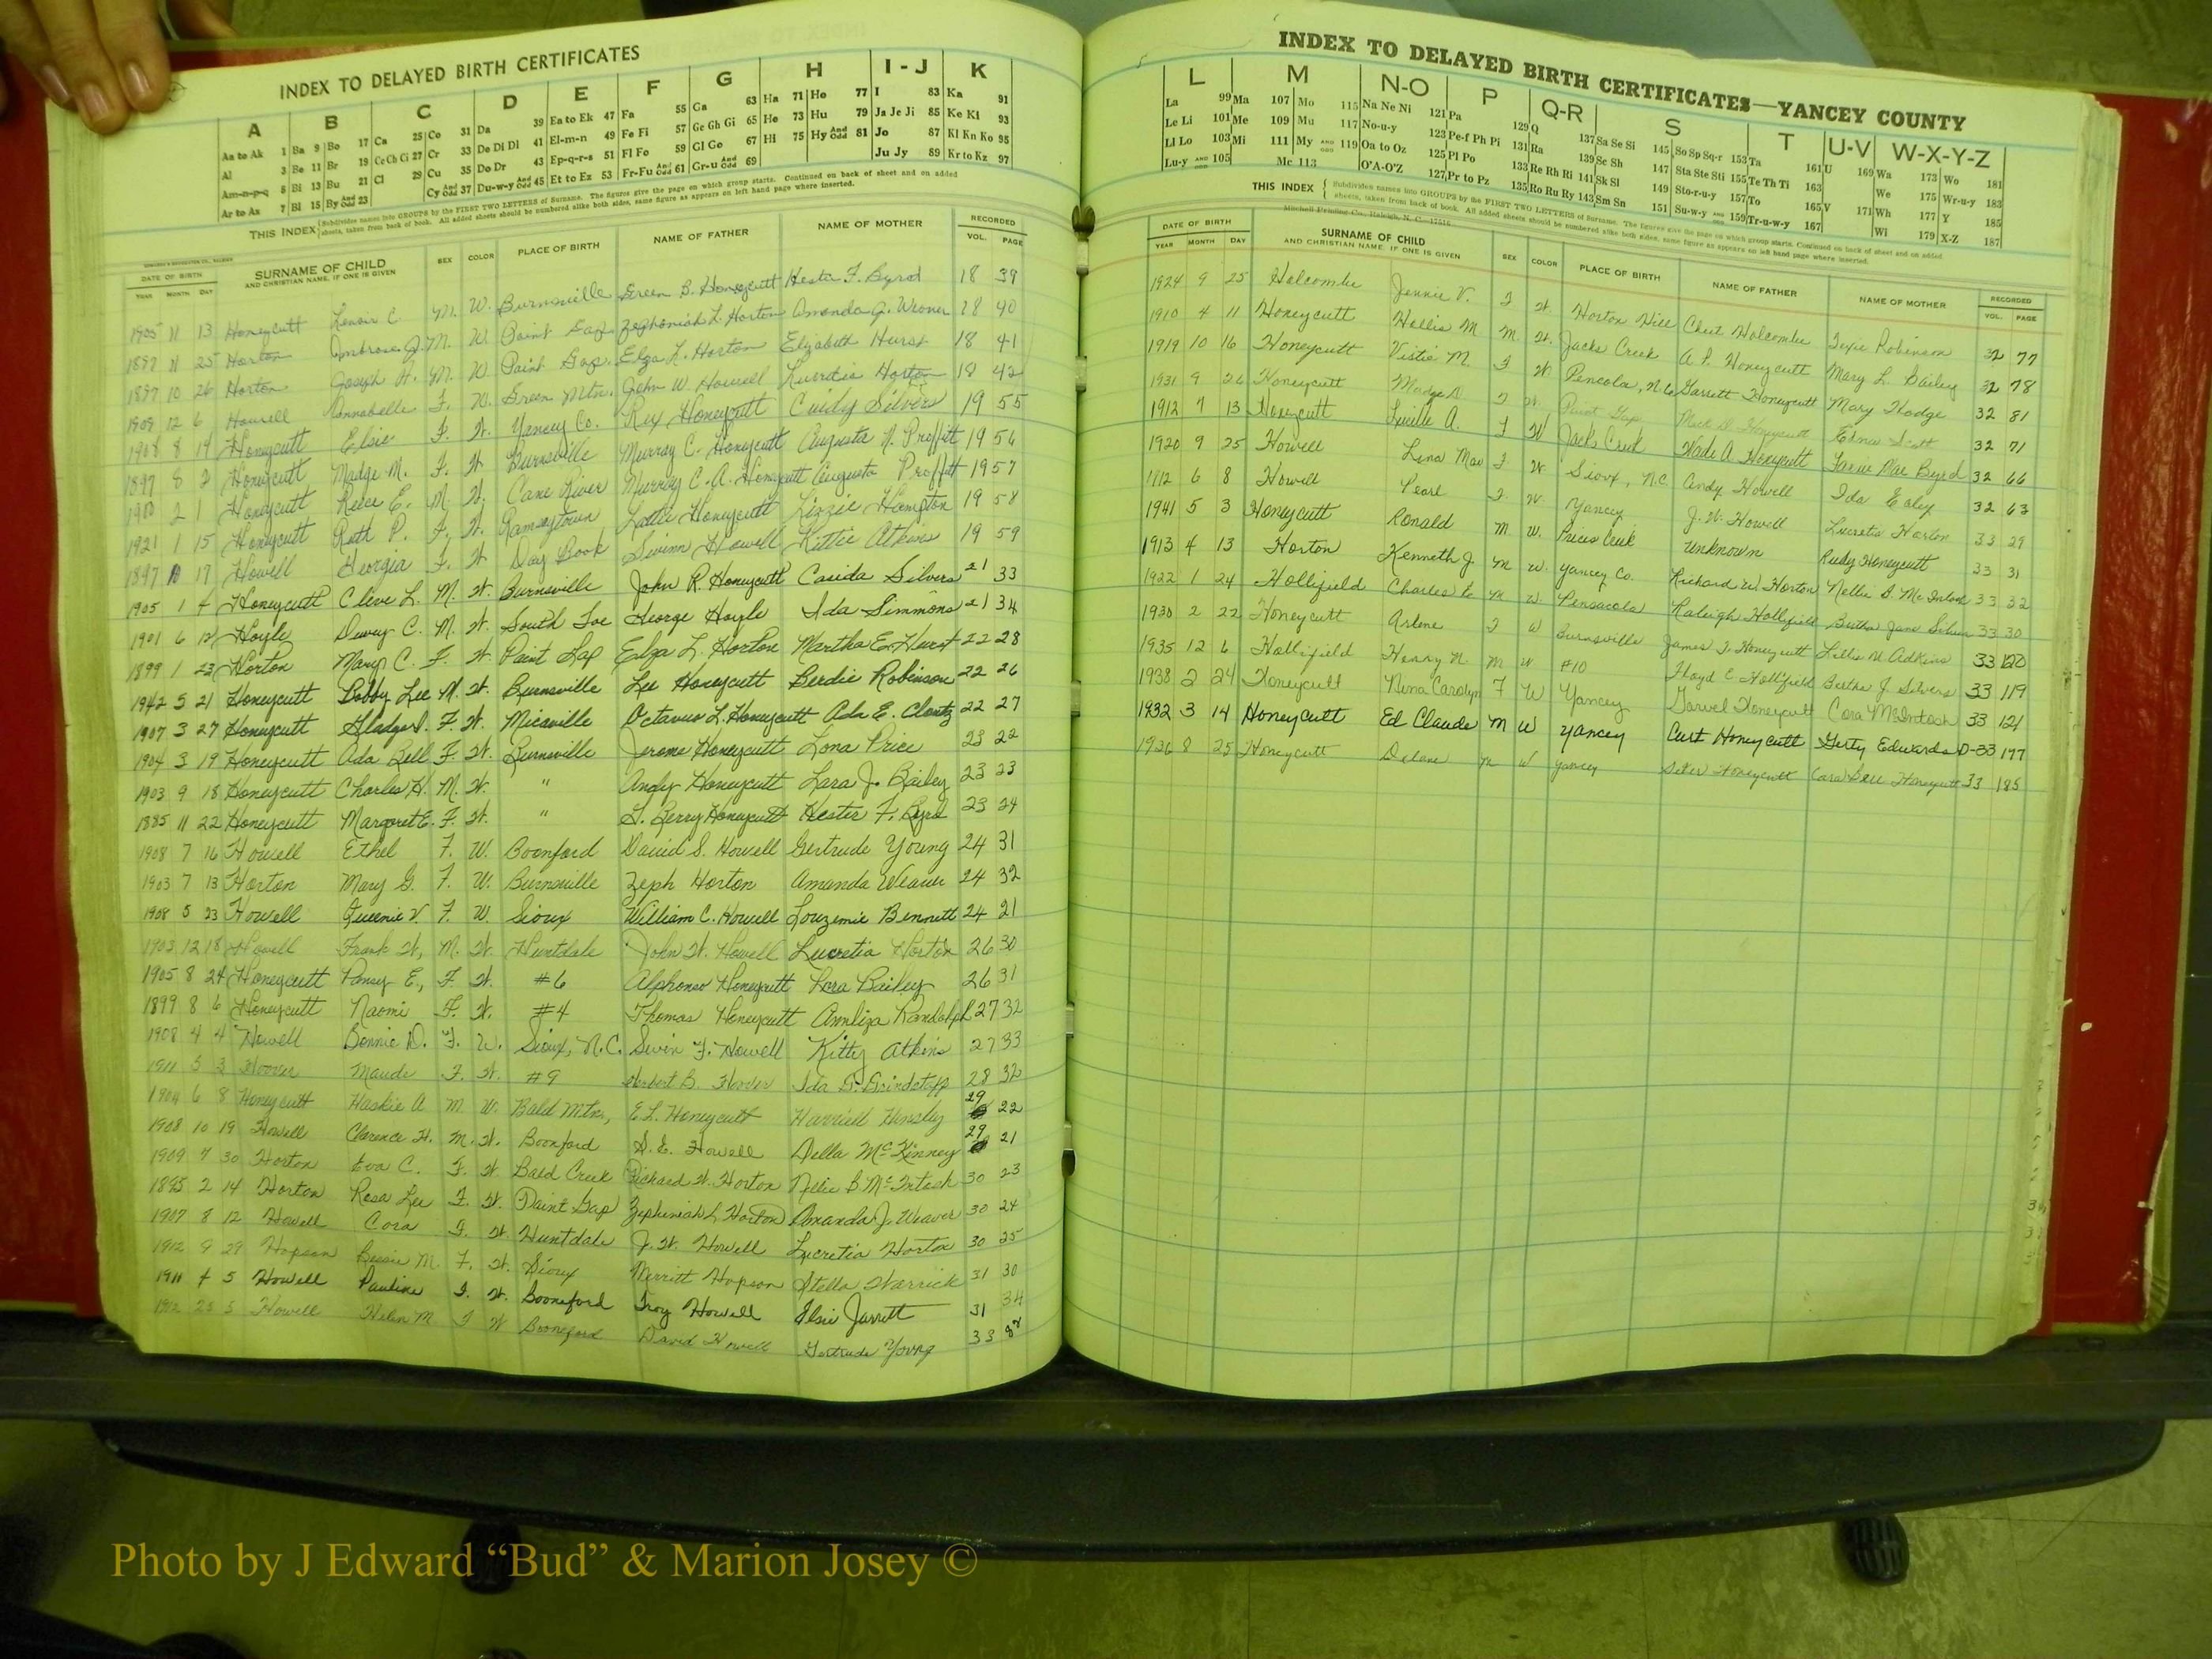 INDEX TO DELAYED BIRTH CERTIFICATES
A B C D E F G H I - J K
Aa to Ak 1 Ba 9 Bo 17 Ca 25 Co 31 Da 39 Ea to Ek 47 Fa 55 Ga 63 Ha 71 Ho 77 I 83 Ka 91
Al 3 Be 11 Br 19 Ce Ch Ci 27 Cr 33 De Di Dl 41 El-m-n 49 Fe Fi 57 Ge Gh Gi 65 He 73 Hu 79 Ja Je Ji 85 Ke Ki 93
Am-n-p-q 5 Bi 13 Bu 21 Cl 29 Cu 35 Do Dr 43 Ep-q-r-s 51 Fl Fo 59 Gl Go 67 Hi 75 Hy And Odd 81 Jo 87 Kl Kn Ko 95
Ar to Az 7 Bl 15 By And Odd 23 Cy And Odd 37 Du-w-y And Odd 45 Et to Ez 53 Fr-Fu And Odd 61 Gr-u And Odd 69 Ju Jy 89 Kr to Kz 97
THIS INDEX Subdivides names into GROUPS by the FIRST TWO LETTERS of Surname. The figures give the page on which group starts. Continued on back of sheet and on added
sheets, taken from back of book. All added sheets should be numbered alike both sides, same figure as appears on left hand page where inserted.
DATE OF BIRTH SURNAME OF CHILD SEX COLOR PLACE OF BIRTH NAME OF FATHER NAME OF MOTHER RECORDED
YEAR MONTH DAY AND CHRISTIAN NAME, IF ONE IS GIVEN VOL. PAGE
1905 11 13 Honeycutt Lenoir C. M. W. Burnsville Green B. Honeycutt Hester F. Byrd 18 39
1897 11 25 Horton Ambrose J. M. W. Paint Gap Zephoniah L. Horton Amanda J. Weaver 18 40
1897 10 26 Horton Joseph H. M. W. Paint Gap. Elza L. Horton Elizabeth Hurst 18 41
1909 12 6 Howell Annabelle F. W. Green Mtn. John W. Howell Lucretia Horton 18 42
1908 8 19 Honeycutt Elsie F. W. Yancey Co. Rex Honeycutt Cuidy Silvers 19 55
1897 8 2 Honeycutt Madge M. F. W. Burnsville Murray C. Honeycutt Augusta N. Proffitt 19 56
2 1 Honeycutt Reece E. M. W. Cane River Murray C. A. Honeycutt Augusta Proffitt 19 57
1921 1 15 Honeycutt Ruth P. F. W. Ramseytown Lattie Honeycutt Lizzie Hampton 19 58
1897 17 Howell Georgia F. W. Day Book Swinn Howell Kittie Atkins 19 59
1905 1 4 Honeycutt Cleve L. M. W. Burnsville John R. Honeycutt Casida Silvers 21 33
1901 6 12 Hoyle Dewey C. M. W. South Toe George Hoyle Ida Simmons 21 34
1899 1 23 Horton Mary C. F. W. Paint Gap Elza L. Horton Martha E. Hurst 22 28
1942 5 21 Honeycutt Bobby Lee M. W. Burnsville Lee Honeycutt Berdie Robinson 22 26
1907 3 27 Honeycutt Gladys S. F. W. Micaville Octavus L. Honeycutt Ada E. Clontz 22 27
1904 3 19 Honeycutt Ada Bell F. W. Burnsville Jerome Honeycutt Lona Price 23 22
1903 9 18 Honeycutt Charles H. M. W. " Andy Honeycutt Lara J. Bailey 23 23
1885 11 22 Honeycutt Margaret E. F. W. " G. Berry Honeycutt Hester F. Byrd 23 24
1908 7 16 Howell Ethel F. W. Boonford David S. Howell Gertrude Young 24 31
1903 7 13 Horton Mary G. F. W. Burnsville Zeph Horton Amanda Weaver 24 32
1908 5 23 Howell Queenie V. F. W. Sioux William C. Howell Louzemie Bennett 24 21
1903 12 18 Howell Frank W. M. W. Huntdale John W. Howell Lucretia Horton 26 30
1905 8 24 Honeycutt Pansy E., F. W. #6 Alphonso Honeycutt Lora Bailey 26 31
1899 8 6 Honeycutt Naomi F. W. #4 Thomas Honeycutt Annliza Randolph 27 32
1908 4 4 Howell Bonnie D. F. W. Sioux, N.C. Swin F. Howell Kitty Atkins 27 33
1911 5 3 Hoover Maude F. W. #9 Herbert B. Hoover Ida G. Grindstaff 28 32
1904 6 8 Honeycutt Haskie A M W. Bald Mtn., E. L. Honeycutt Harriett Hensley 29 22
1908 10 19 Howell Clarence H. M. W. Boonford S. E. Howell Della McKinney 29 21
1909 7 30 Horton Eva C. F. W. Bald Creek Richard W. Horton Nellie B McIntosh 30 23
1895 2 14 Horton Rosa Lee F. W. Paint Gap Zephiniah L. Horton Amanda J. Weaver 30 24
1907 8 12 Howell Cora F. W. Huntdale J. W. Howell Lucretia Horton 30 25
1912 9 29 Hopson Bessie M. F. W. Sioux Merritt Hopson Stella Warrick 31 30
1911 4 5 Howell Pauline F. W. Booneford Troy Howell Elsie Jarrett 31 34
1912 25 5 Howell Helen M F W Booneford David Howell Gertrude Young 33 82
INDEX TO DELAYED BIRTH CERTIFICATES—YANCEY COUNTY
L M N-O P Q-R S T U-V W-X-Y-Z
La 99 Ma 107 Mo 115 Na Ne Ni 121 Pa 129 Q 137 Sa Se Si 145 So Sp Sq-r 153 Ta 161 U 169 Wa 173 Wo 181
Le Li 101 Me 109 Mu 117 No-u-y 123 Pe-f Ph Pi 131 Ra 139 Sc Sh 147 Sta Ste Sti 155 Te Th Ti 163 We 175 Wr-u-y 183
Ll Lo 103 Mi 111 My AND ODD 119 Oa to Oz 125 Pl Po 133 Re Rh Ri 141 Sk Sl 149 Sto-r-u-y 157 To 165 V 171 Wh 177 Y 185
Lu-y AND ODD 105 Mc 113 O'A-O'Z 127 Pr to Pz 135 Ro Ru Ry 143 Sm Sn 151 Su-w-y AND ODD 159 Tr-u-w-y 167 Wi 179 X-Z 187
THIS INDEX Subdivides names into GROUPS by the FIRST TWO LETTERS of Surname. The figures give the page on which group starts. Continued on back of sheet and on added
sheets, taken from back of book. All added sheets should be numbered alike both sides, same figure as appears on left hand page where inserted.
Mitchell Printing Co., Raleigh, N. C.
DATE OF BIRTH SURNAME OF CHILD SEX COLOR PLACE OF BIRTH NAME OF FATHER NAME OF MOTHER RECORDED
YEAR MONTH DAY AND CHRISTIAN NAME, IF ONE IS GIVEN VOL. PAGE
1924 9 25 Holcombe Jennie V. F W. Horton Hill Chest Holcombe Texie Robinson 32 77
1910 4 11 Honeycutt Hollis M M. W. Jacks Creek A. P. Honeycutt Mary L. Bailey 32 78
1919 10 16 Honeycutt Vistie M. F W. Pencola, N.C. Garrett Honeycutt Mary Hodge 32 81
1931 9 26 Honeycutt Madge D F W. Paint Gap Mack D. Honeycutt Edna Scott 32 71
1912 7 13 Honeycutt Lucille A. F W Jacks Creek Wade A Honeycutt Fannie Mae Byrd 32 66
1920 9 25 Howell Lena Mae F W. Sioux, N.C. Andy Howell Ida Ealey 32 63
1912 6 8 Howell Pearl F. W. Yancey J. W. Howell Lucretia Horton 33 29
1941 5 3 Honeycutt Ronald M W. Prices Creek Unknown Rudy Honeycutt 33 31
1913 4 13 Horton Kenneth J. M W. Yancey Co. Richard W. Horton Nellie B. McIntosh 33 32
1922 1 24 Hollifield Charles M W. Pensacola Raleigh Hollifield Bertha Jane Silvers 33 30
1930 2 22 Honeycutt Arlene F W Burnsville James F. Honeycutt Lillie N Adkins 33 120
1935 12 6 Hollifield Henry N. M W #10 Floyd C Hollifield Bertha J. Silvers 33 119
1938 2 24 Honeycutt Nina Carolyn F W Yancey Garvel Honeycutt Cora McIntosh 33 121
1932 3 14 Honeycutt Ed Claude M W Yancey Curt Honeycutt Gerty Edwards D-33 177
1926 8 25 Honeycutt Delane M W Yancey Seter Honeycutt Cara Bell Honeycutt 33 185
Photo by J Edward “Bud” & Marion Josey ©